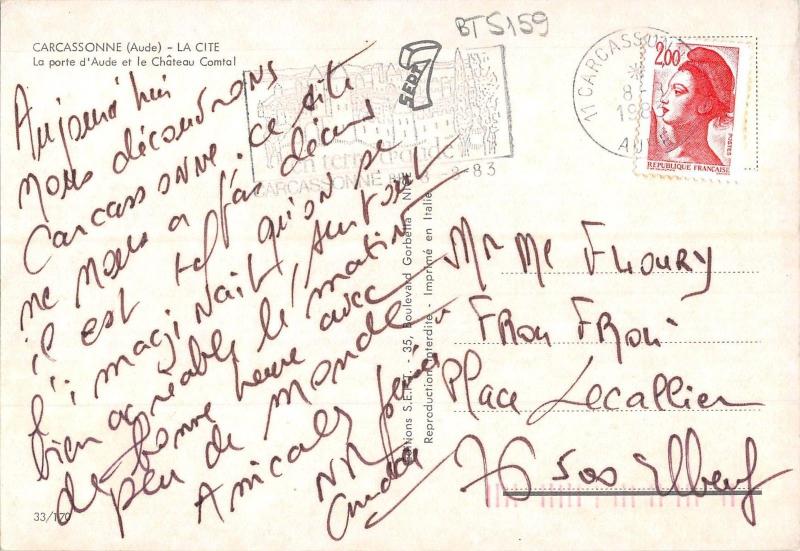 CARCASSONNE (Aude) - LA CITE
La porte d'Aude et le Château Comtal
BTS159
SEPT 7
en terre d'oc
CARCASSONNE
83
11 CARCASSONNE
8
198
AUDE
2,00
POSTES
REPUBLIQUE FRANÇAISE
Aujourd'hui
nous découvrons
Carcassonne. ce site
ne nous a pas déçus
il est tel qu'on se
l'imaginait, surtout
bien agréable le matin
de bonne heure avec
peu de monde
Amicales
André
Editions S.E.P.T. - 35, Boulevard Gorbella
Reproduction interdite - Imprimé en Italie
Mr Me FLOURY
FROU FROU
Place Lecallier
76500 Elbeuf
33/170